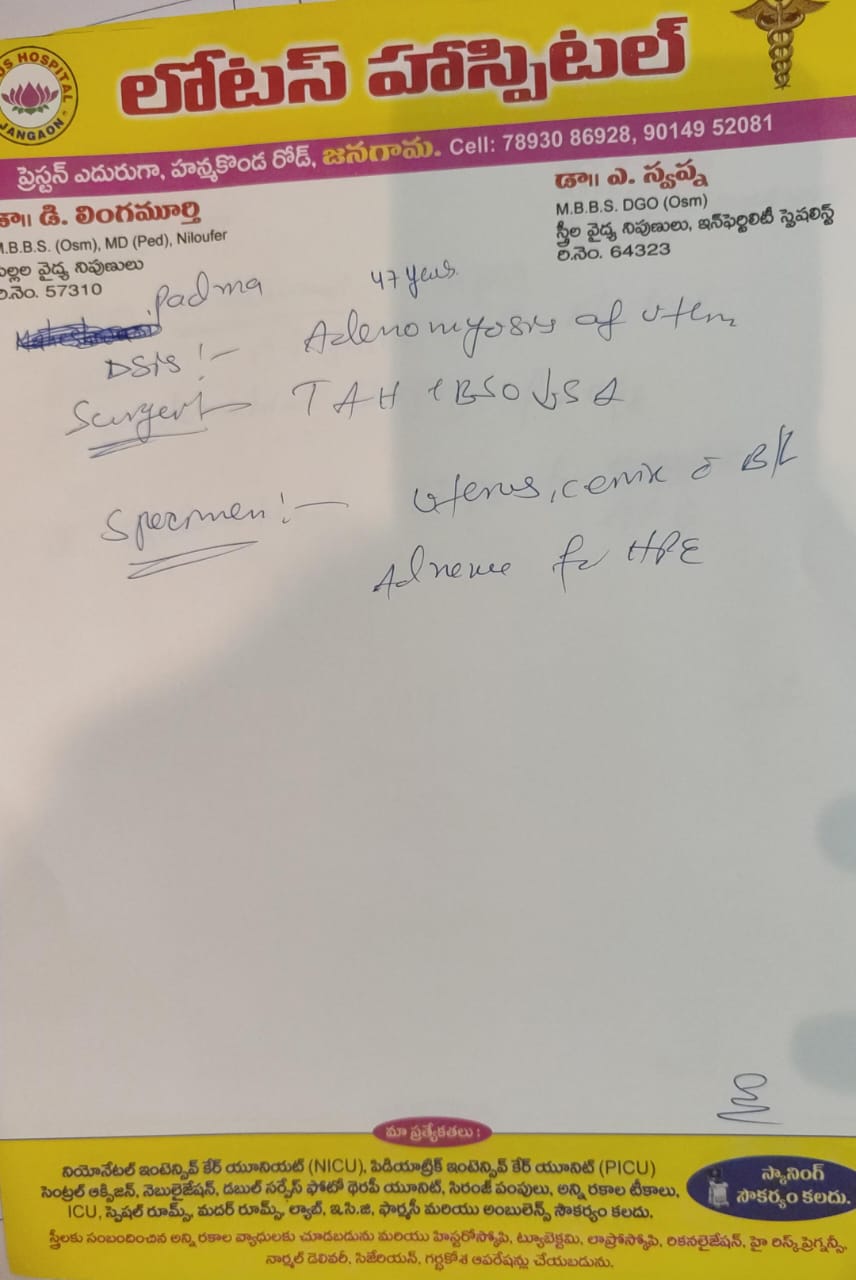 US HOSPITAL
JANGAON
లోటస్ హాస్పిటల్
ప్రెస్టన్ ఎదురుగా, హన్మకొండ రోడ్, జనగామ. Cell: 78930 86928, 90149 52081
డా॥ డి. లింగమూర్తి
M.B.B.S. (Osm), MD (Ped), Niloufer
పిల్లల వైద్య నిపుణులు
రి.నెం. 57310
డా॥ ఎ. స్వప్న
M.B.B.S. DGO (Osm)
స్త్రీల వైద్య నిపుణులు, ఇన్‌ఫెర్టిలిటీ స్పెషలిస్ట్
రి.నెం. 64323
Padma 47 years
Adenomyosis of uterus
Surgery TAH + BSO SA
Specimen :- Uterus, cervix c̄ B/L
Adnexae for HPE
మా ప్రత్యేకతలు :
నియోనేటల్ ఇంటెన్సివ్ కేర్ యూనియట్ (NICU), పిడియాట్రిక్ ఇంటెన్సివ్ కేర్ యూనిట్ (PICU)
సెంట్రల్ ఆక్సిజన్, నెబులైజేషన్, డబుల్ సర్ఫేస్ ఫోటో థెరపీ యూనిట్, సిరంజ్ పంపులు, అన్ని రకాల టీకాలు,
ICU, స్పెషల్ రూమ్స్, మదర్ రూమ్స్, ల్యాబ్, ఇ.సి.జి, ఫార్మసీ మరియు అంబులెన్స్ సౌకర్యం కలదు.
స్కానింగ్
సౌకర్యం కలదు.
స్త్రీలకు సంబందించిన అన్ని రకాల వ్యాధులకు చూడబడును మరియు హిస్టరోస్కోపి, ట్యూబెక్టమి, లాప్రోస్కోపి, రికనలైజేషన్, హై రిస్క్ ప్రెగ్నన్సీ,
నార్మల్ డెలివరీ, సిజేరియన్, గర్భకోశ ఆపరేషన్లు చేయబడును.